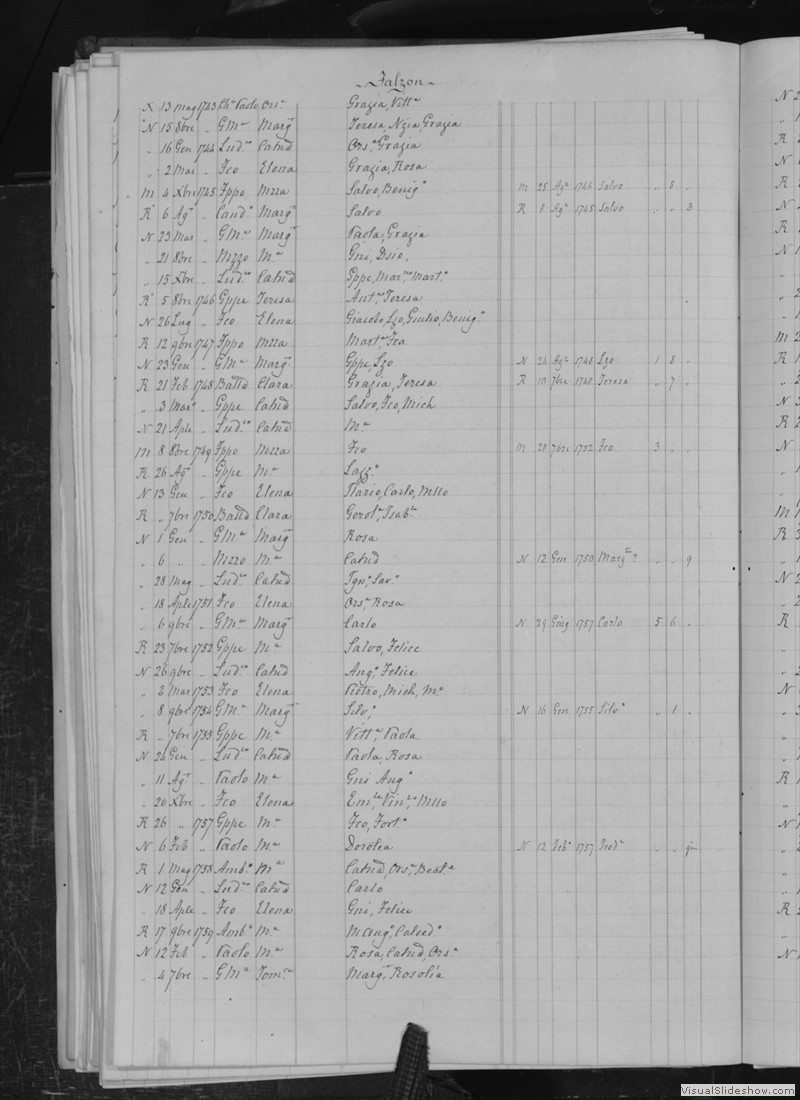 Falzon
N 13 mag 1743 Chᵃ Paolo, Orsᵃ Grazia, Vittᵃ
N 15 8bre „ G Mᵃ Margᵗᵃ Teresa, Nzia, Grazia
„ 16 Gen 1744 Ludᵒ Catnd Orsᵃ Grazia
„ 2 Mar „ Fco Elena Grazia, Rosa
m 4 Xbre 1745 Fppo Mzza Salvo, Benigᵒ m 25 Agᵒ 1746 Salvo „ 8 „
R 6 Agᵒ „ Candᵒ Margᵗᵃ Salvo R 8 Agᵒ 1745 Salvo „ „ 3
N 23 Mar „ G Mᵃ Margᵗᵃ Paola, Grazia
„ 21 8bre „ Mzzo Mᵃ Gni, Dsio,
„ 15 Xbre „ Ludᵒ Catnd Gppe, Marᵐᵃ Martᵃ
R 5 8bre 1746 Gppe Teresa Antᵃ Teresa
N 26 Lug „ Fco Elena Giacobo, Lzo, Giulio, Benigᵒ
R 12 9bre 1747 Fppo Mzza Martᵃ, Fca
N 23 Gen „ G Mᵃ Margᵗᵃ Gppe, Lzo N 24 Agᵒ 1748 Lzo 1 8 „
R 21 Feb 1748 Battᵃ Clara Grazia, Teresa R 10 7bre 1748 Teresa „ 7 „
„ 3 Marᵒ „ Gppe Catnd Salvo, Fco, Mich
N 21 Aple „ Ludᵒ Catnd Mᵃ
m 8 8bre 1749 Fppo Mzza Fco m 28 7bre 1752 Fco 3 „ „
R 26 Agᵒ „ Gppe Mᵃ Lazzᵒ
N 13 Gen „ Fco Elena Ilario, Carlo, Mllo
R „ 7bre 1750 Battᵃ Clara Gerolᵃ, Isabᵃ
N 1 Gen „ G Mᵃ Margᵗᵃ Rosa
„ 6 „ „ Mzzo Mᵃ Catnd N 12 Gen 1750 Margᵗᵃ? „ „ 9
„ 28 Mag „ Ludᵒ Catnd Ignᵒ, Savᵒ
„ 18 Aple 1751 Fco Elena Orsᵃ, Rosa
„ 6 9bre „ G Mᵃ Margᵗᵃ Carlo N 29 Giug 1757 Carlo 5 6 „
R 23 7bre 1752 Gppe Mᵃ Salvo, Felice
N 26 9bre „ Ludᵒ Catnd Angᵒ, Felice
„ 2 Mar 1753 Fco Elena Pietro, Mich, Mᵃ
„ 8 9bre 1754 G Mᵃ Margᵗᵃ Silvᵃ N 16 Gen 1755 Silvᵃ „ 1 „
R „ 7bre 1755 Gppe Mᵃ Vittᵃ, Paola
N 24 Gen „ Ludᵒ Catnd Paola, Rosa
„ 11 Agᵒ „ Paolo Mᵃ Gni Angᵒ
„ 20 Xbre „ Fco Elena Emˡᵃ, Vinᶻᵒ, Mllo
R 26 „ 1757 Gppe Mᵃ Fco, Fortᵃ
N 6 Feb „ Paolo Mᵃ Dorotea N 12 Febᵒ 1757 Teodᵃ „ „ 9
R 1 Mag 1758 Ambᵒ Mᵃ Catnd, Orsᵃ, Beatᵉ
N 12 Gen „ Ludᵒ Catnd Carlo
„ 18 Aple „ Fco Elena Gni, Felice
R 17 9bre 1759 Ambᵒ Mᵃ M Angᵃ, Calcedᵒ
N 12 Feb „ Paolo Mᵃ Rosa, Catnd, Orsᵃ
„ 4 7bre „ G Mᵃ Tomᵃ Margᵗᵃ, Rosolia
VisualSlideshow.com